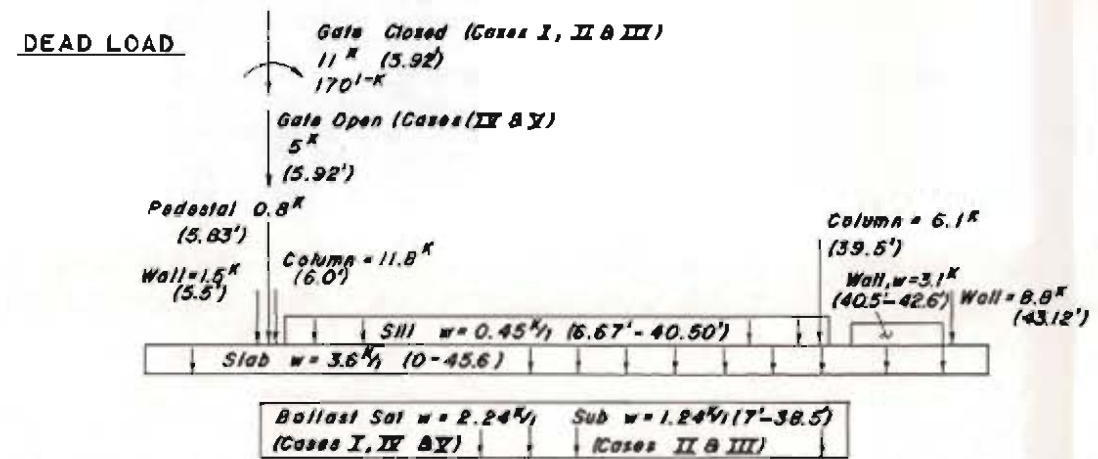 DEAD LOAD
Gate Closed (Cases I, II & III)
11ᴷ (5.92')
170'⁻ᴷ
Gate Open (Cases (IV & V)
5ᴷ
(5.92')
Pedestal 0.8ᴷ
(5.83')
Wall=1.5ᴷ
(5.5')
Column = 11.8ᴷ
(6.0')
Column = 6.1ᴷ
(39.5')
Wall, w=3.1ᴷ
(40.5'-42.6')
Wall = 8.8ᴷ
(43.12')
Sill w = 0.45ᴷ/₁ (6.67'-40.50')
Slab w = 3.6ᴷ/₁ (0-45.6)
Ballast Sat w = 2.24ᴷ/₁ Sub w = 1.24ᴷ/₁ (7'-38.5')
(Cases I, IV & V) (Cases II & III)